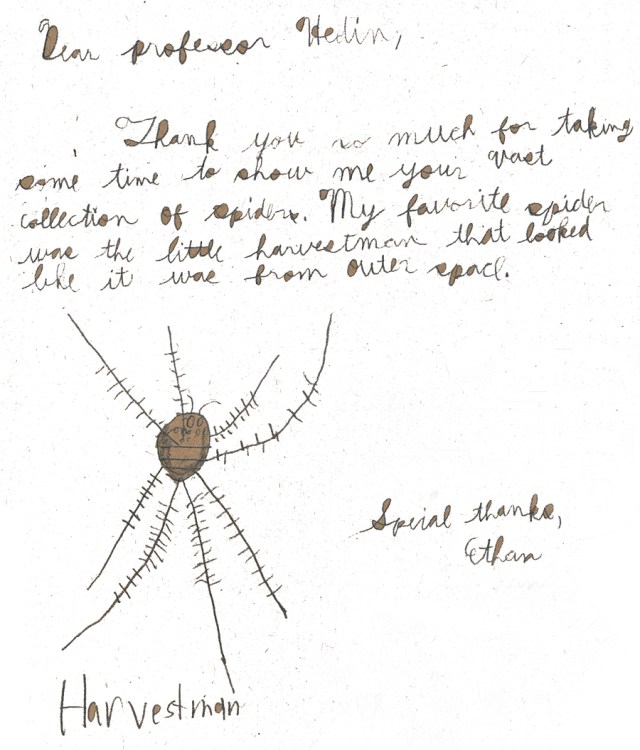 Dear professor Hedin,
Thank you so much for taking
some time to show me your vast
collection of spiders. My favorite spider
was the little harvestman that looked
like it was from outer space.
Special thanks,
Ethan
Harvestman